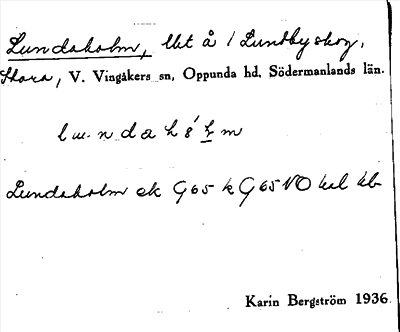 Lundaholm, lht å / Lundby skog,
Stora, V. Vingåkers sn, Oppunda hd, Södermanlands län.
Lundaholm ek G 65 k G 65 NO kal kb
Karin Bergström 1936